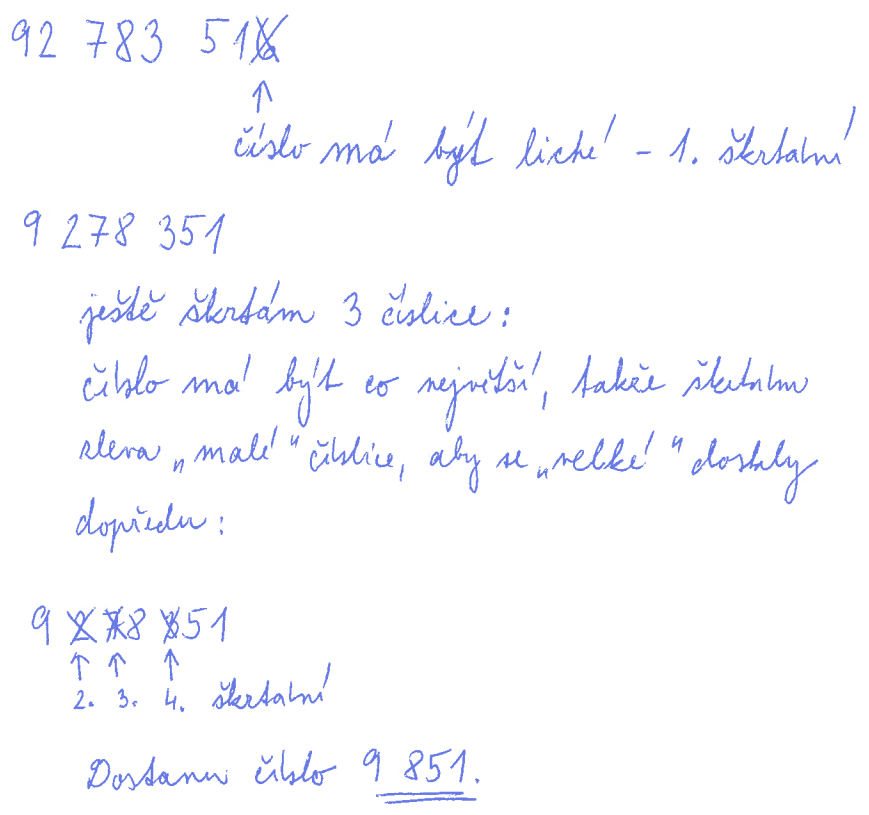 92 783 516
↑
číslo má být liché – 1. škrtání
9 278 351
ještě škrtám 3 číslice:
číslo má být co největší, takže škrtám
zleva „malé" číslice, aby se „velké" dostaly
dopředu:
9 278 351
↑ ↑ ↑
2. 3. 4. škrtání
Dostanu číslo 9 851.